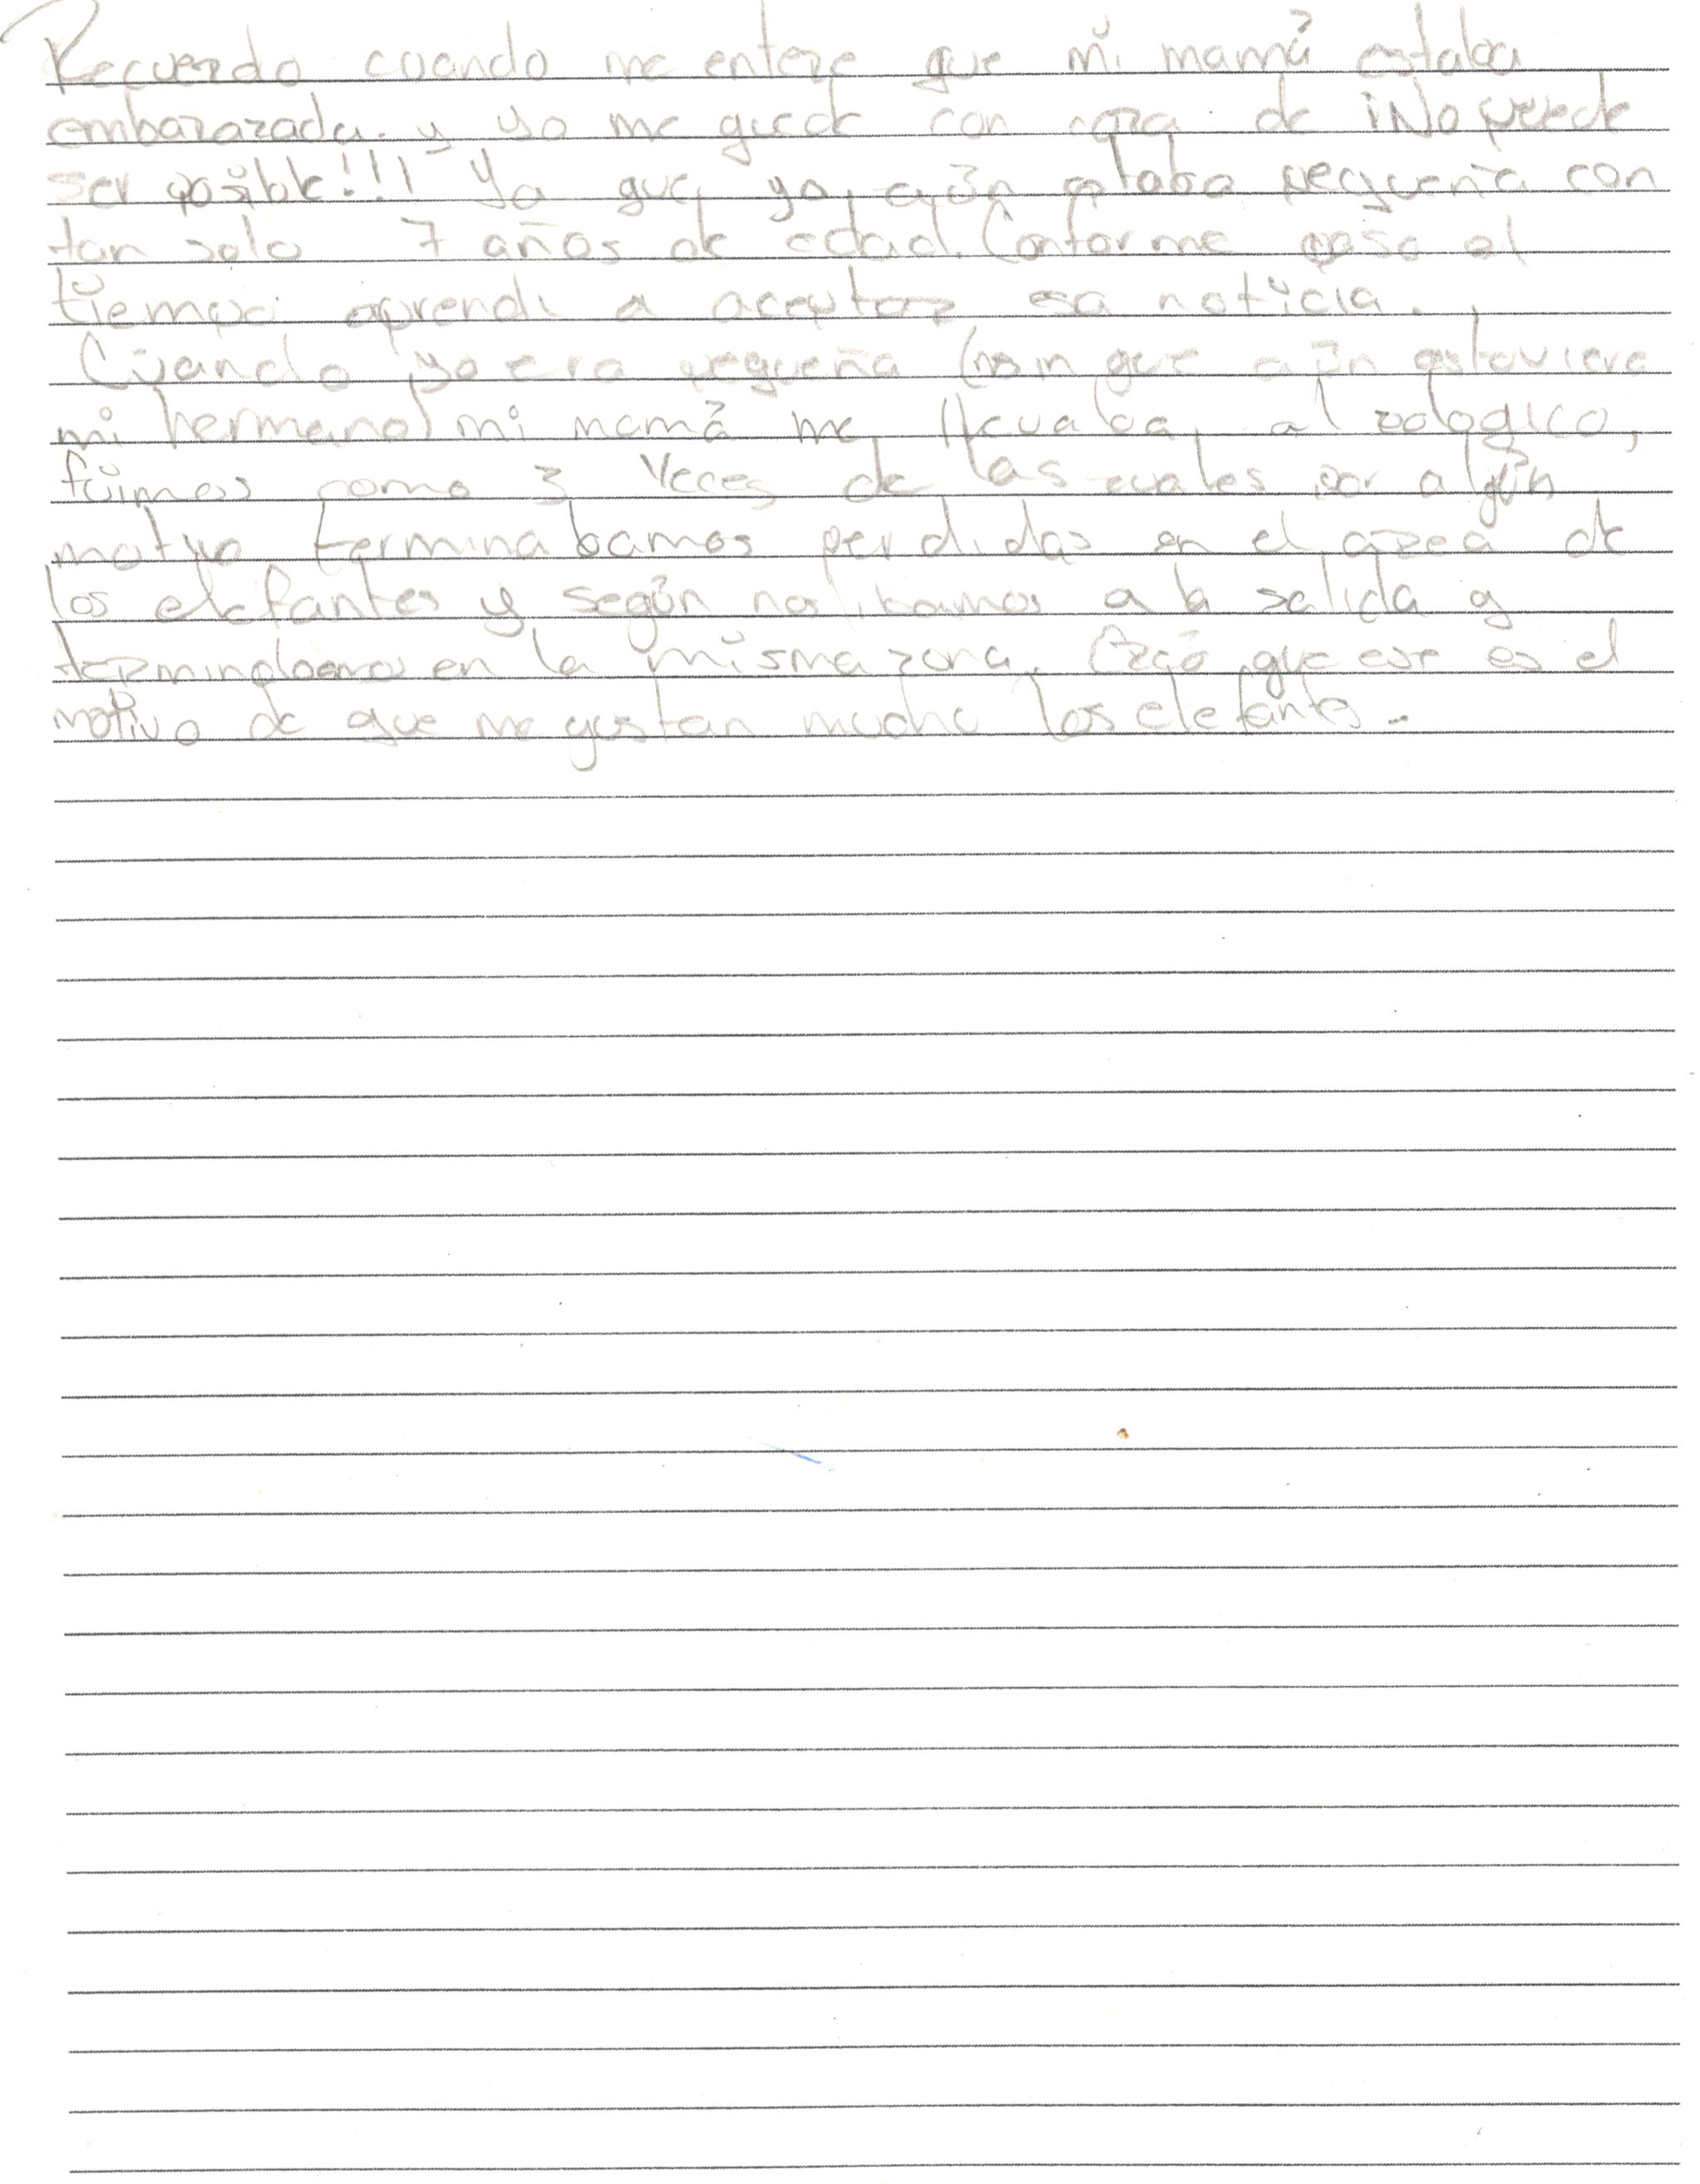 Recuerdo cuando me entere que mi mamá estaba
embarazada. y yo me quede con cara de ¡No puede
ser posible!!! Ya que yo aún estaba pequeña con
tan solo 7 años de edad. Conforme paso el
tiempo aprendi a aceptar esa noticia.
Cuando yo era pequeña (sin que aún estuviera
mi hermano) mi mamá me llevaba al zologico,
fuimos como 3 veces de las cuales por algún
motivo terminabamos perdidas en el area de
los elefantes y según nos ibamos a la salida y
terminabamos en la misma zona. Creo que ese es el
motivo de que me gustan mucho los elefantes.